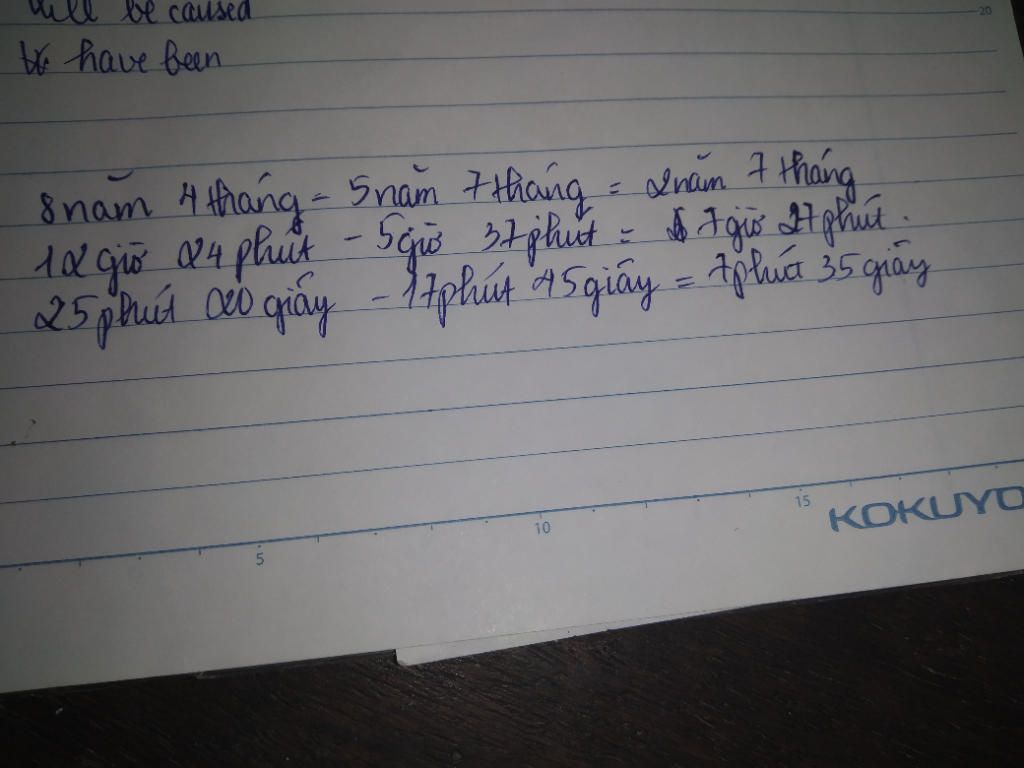 will be caused
have been
8 năm 4 tháng - 5 năm 7 tháng = 2 năm 7 tháng
12 giờ 24 phút - 5 giờ 37 phút = 7 giờ 27 phút.
25 phút 20 giấy - 17 phút 45 giấy = 7 phút 35 giấy
5 10 15 20
KOKUYO